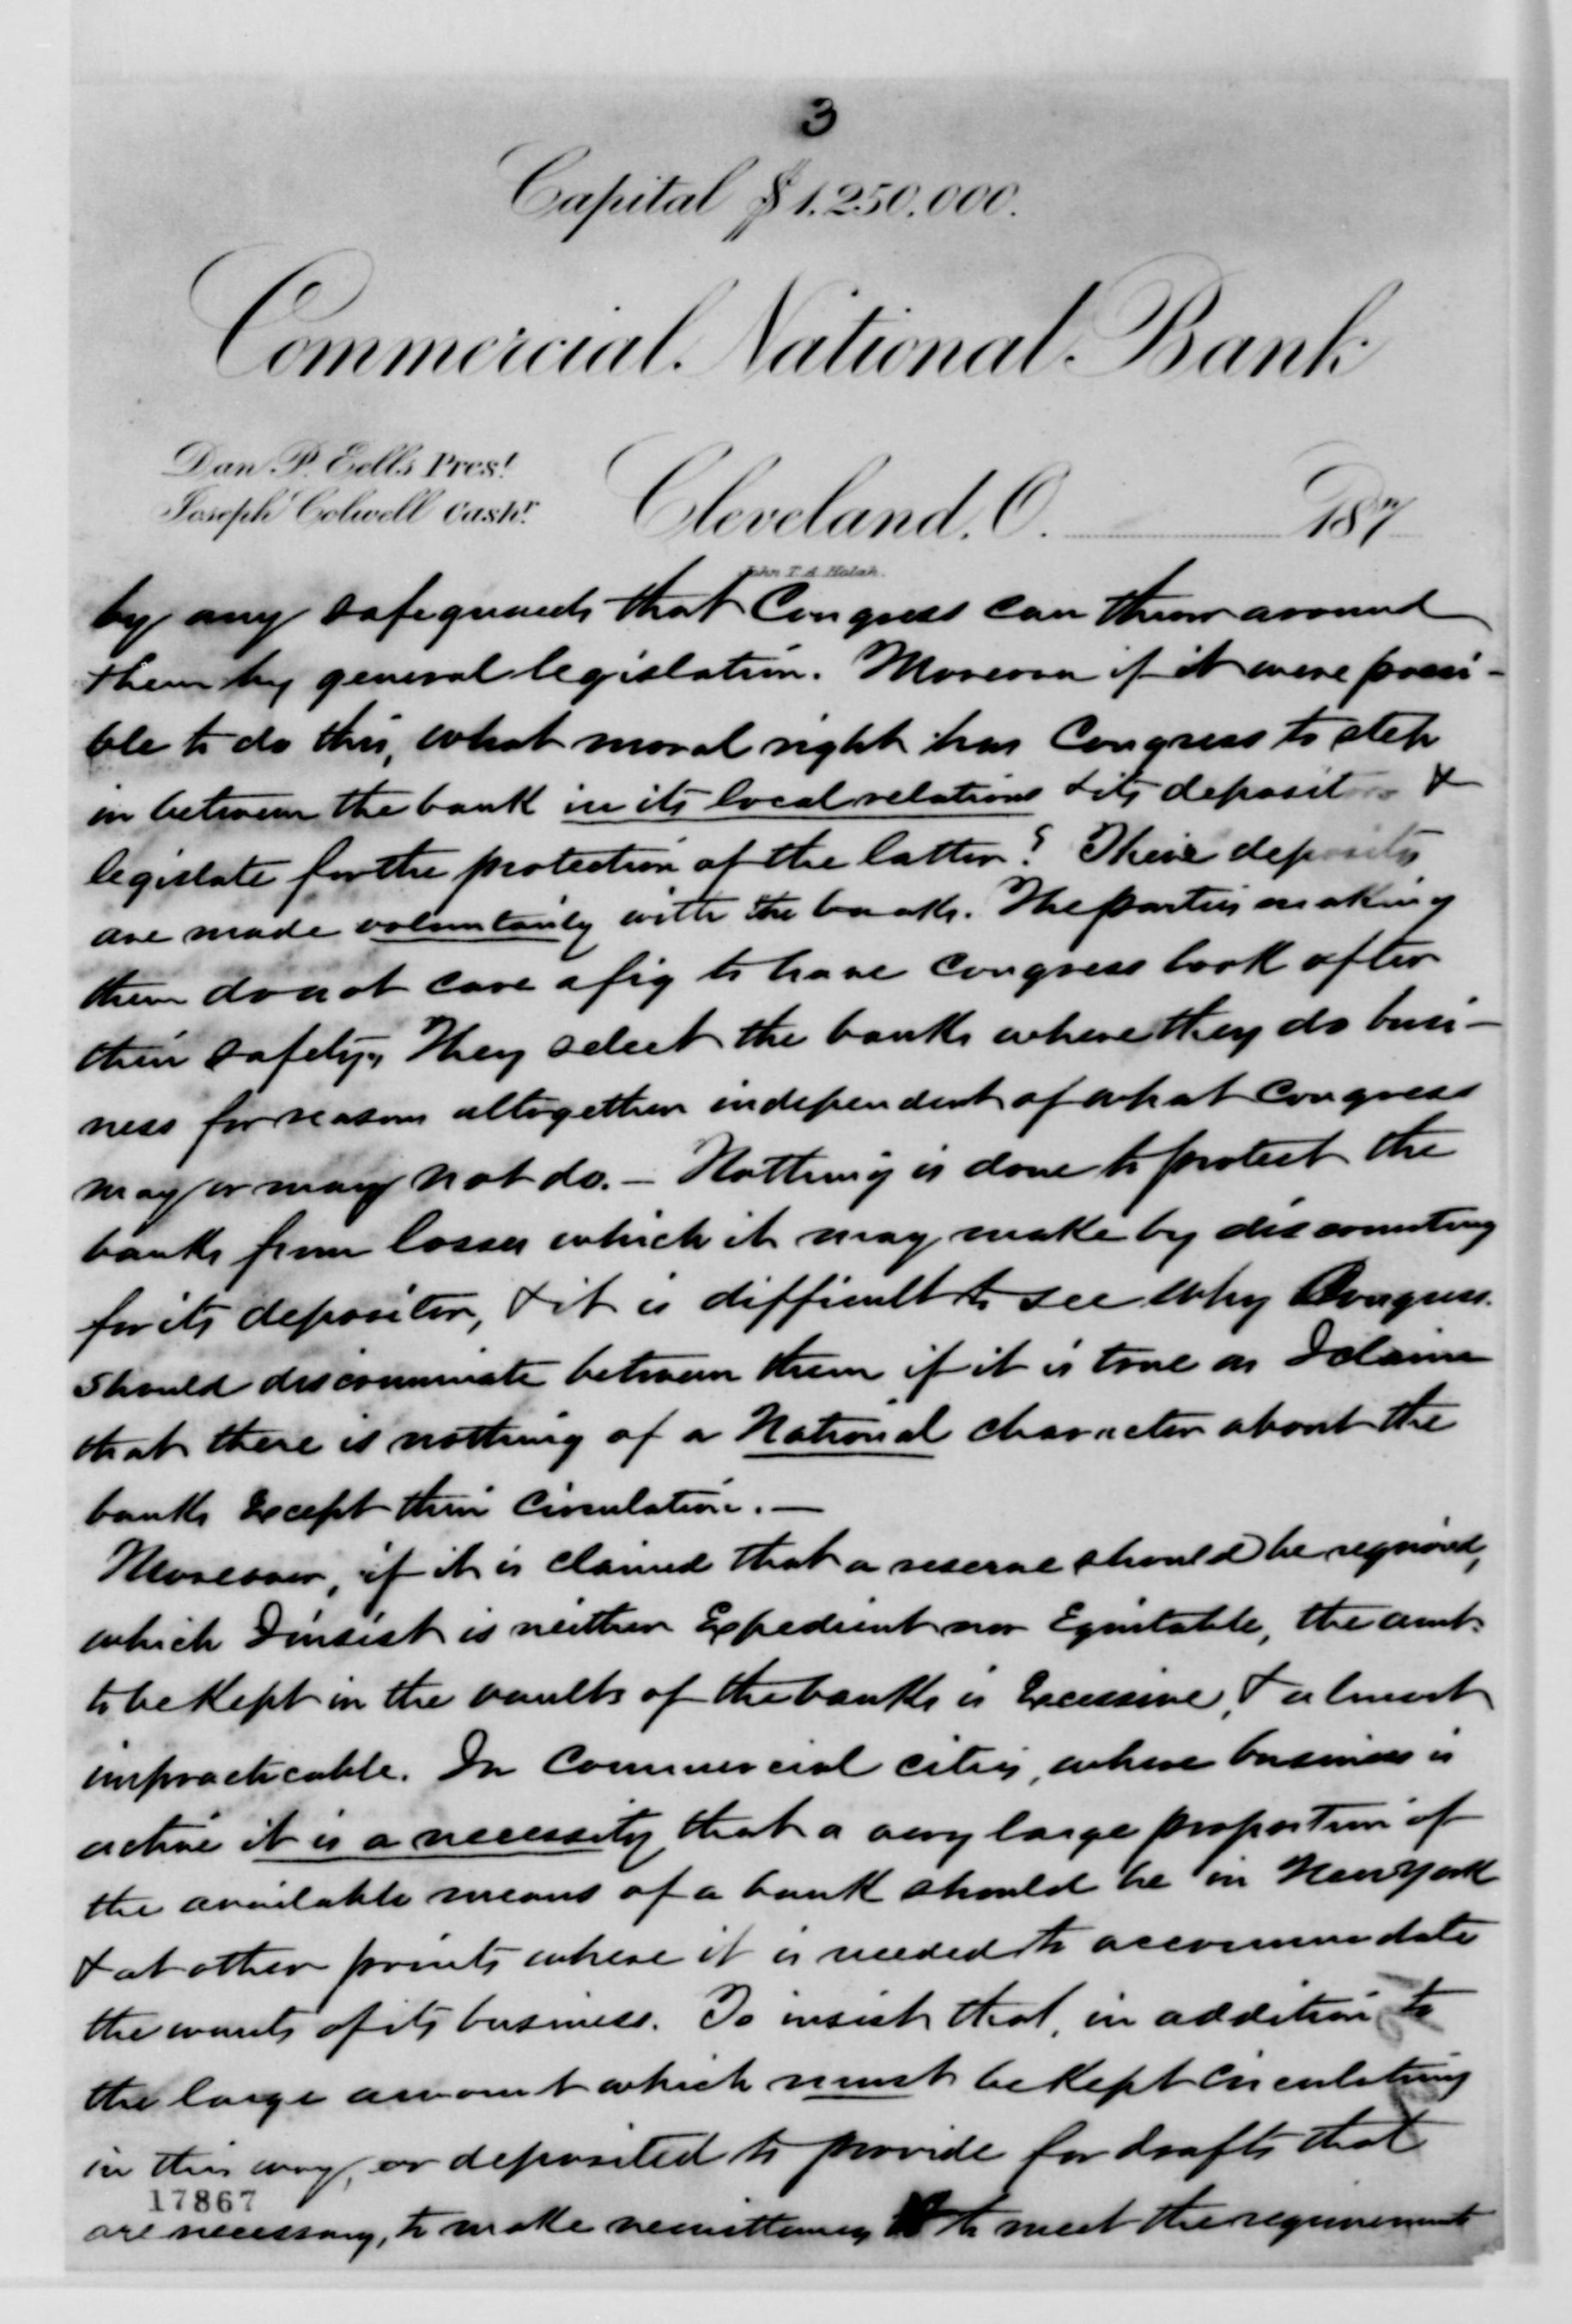 3
Capital $1.250.000.
Commercial National Bank
Dan. P. Eells Prest
Joseph Colwell Cashr
Cleveland, O. 187
by any safeguards that Congress can throw around
them by general legislation. Moreover if it were possi-
ble to do this, what moral right has Congress to step
in between the bank in its local relations & its depositors &
legislate for the protection of the latter? These deposits
are made voluntarily with the banks. The parties making
them do not care a fig to have Congress look after
their safety. They select the banks where they do busi-
ness for reasons altogether independent of what Congress
may or may not do. — Nothing is done to protect the
banks from losses which it may make by discounting
for its depositors, & it is difficult to see why Congress
should discriminate between them if it is true as I claim
that there is nothing of a National character about the
banks except their circulation. —
Moreover, if it is claimed that a reserve should be required,
which I insist is neither Expedient nor Equitable, the amt.
to be kept in the vaults of the banks is Excessive, & almost
impracticable. In Commercial cities, where business is
active it is a necessity that a very large proportion of
the available means of a bank should be in New York
& at other points where it is needed to accommodate
the wants of its business. To insist that, in addition to
the large amount which must be kept circulating
in this way, or deposited to provide for drafts that
17867
are necessary, to make remittances to meet the requirements